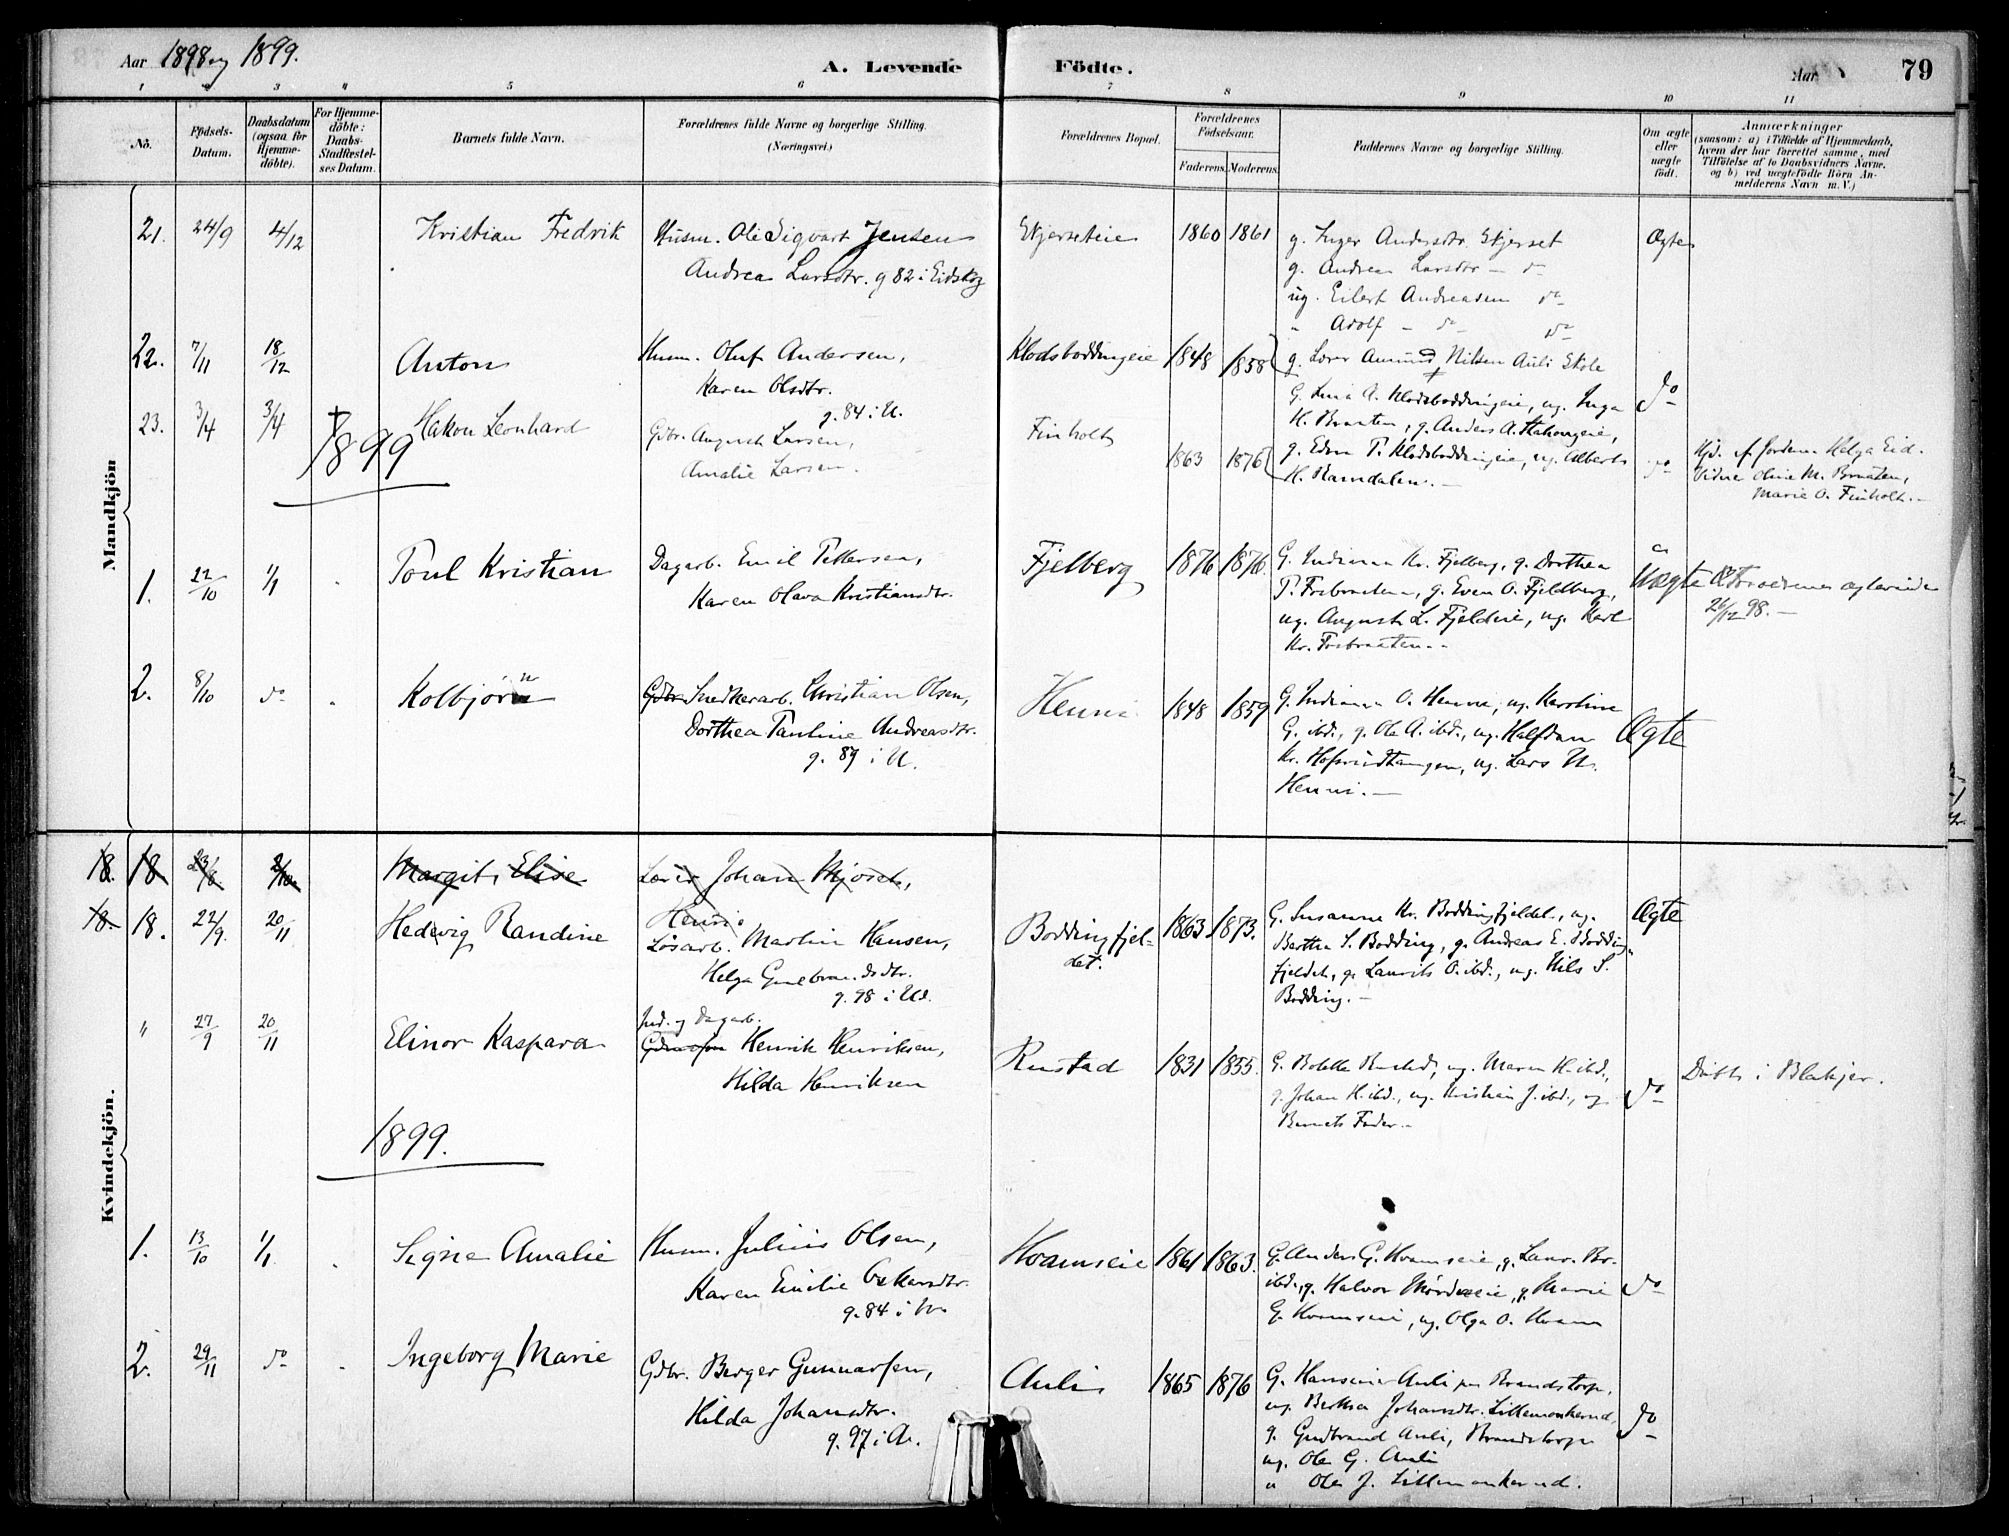 Aar 1898 og 1899.
A. Levende Födte.
Aar
79
1 2 3 4 5 6 7 8 9 10 11
No.
Födsels-Datum.
Daabsdatum (ogsaa for Hjemme-döbte).
For Hjemme-döbte: Daabs-Stadfæstel-ses Datum.
Barnets fulde Navn.
Forældrenes fulde Navne og borgerlige Stilling.
(Næringsvei.)
Forældrenes Bopæl.
Forældrenes Födselsaar.
Faderens. Moderens.
Faddernes Navne og borgerlige Stilling.
Om ægte eller uægte födt.
Anmærkninger
(saasom: a) i Tilfælde af Hjemmedaab, hvem der har forrettet samme, med Tilföielse af to Daabsvidners Navne, og b) ved uægtefödte Börn An-melderens Navn m. V.)
Mandkjön
21. 24/9 4/12 Kristian Fredrik Husm. Ole Sigvart Jensen Skjerseteie 1860 1861 g. Inger Andersdtr. Skjerset Ægte
Andrea Larsdtr. g 82 i Eidskog g. Andrea Larsdtr do
ug. Eilert Andreasen do
" Adolf do do
22. 7/11 18/12 Anton Husm. Oluf Andersen, Klodsboddingeie 1848 1858 g. Lærer Amund Nilsen Auli Skole do
Karen Olsdtr. g. 84 i U. G. Lina A. Klodsboddingeie, ug. Inga
H. Braaten, g. Anders A.
23. 3/4 3/4 † Hakon Leonhard Gdbr. August Larsen, Finholt 1863 1876 g. Edvin P. Klodsboddingeie, ug. Albert do
Amalie Larsen. H. Ramdalen.
Hjd. af Jordem. Helga Eid.
Vidne Oline M. Braaten,
Marie O. Finholt.
1899
1. 22/10 1/1 Poul Kristian Dagarb. Emil Pettersen, Fjelberg 1876 1876 G. Indianna Kr. Fjelberg, g. Dorthea Uægte
Karen Olava Kristiansdtr. P. Fosbraaten, g. Even O. Fjeldberg,
ug. August L. Fjeldeie, ug. Karl
Kr. Fosbraaten.
Forældrenes ægteviede
26/12 98.
2. 8/10 do Kolbjørn Gdbr. Snedkerarb. Christian Olsen, Henni 1848 1859 G. Indianna O. Henni, ug. Karoline Ægte
Dorthea Pauline Andreasdtr. G. ibd., g. Ole A. ibd., ug. Halfdan
g. 89 i U. Kr. Hofsrudtangen, ug. Lars
Henni.
Kvindekjön.
18. 18 23/8 2/10 Margit Elise Lærer Johan Mjøseth,
Henni
18. 18. 22/9. 20/11 Hedvig Randine Løsarb. Martin Hansen, Boddingfjel-det. 1863 1873. G. Susanne Kr. Boddingfjeldet, ug. Ægte
Helga Gulbrandsdtr. Bertha S. Bodding, g. Andreas E. Bodding
g. 98 i Ud. fjeldet, g. Laurits O. ibd., ug. Nils S.
Bodding.
" 27/9 20/11 Elinor Kaspara Ind. og Dagarb.
Henrik Henriksen, Rustad 1831 1855. G. Bolette Rustad, ug. Maren H. ibd., do Døbt i Blakjer.
Hilda Henriksen g. Johan H. ibd., ug. Kristian J. ibd., og
Barnets Fader.
1899.
1. 13/10 1/1 Signe Amalie Husm. Julius Olsen, Hvamseie 1861 1863. G. Anders G. Hvamseie, g. Laur. Br. do
Karen Emilie Oskarsdtr. ibd., g. Halvor Mørdreeie, g. Marie
g. 84 i U. G. Hvamseie, ug. Olga O. Hvam
2. 29/11 do Ingeborg Marie Gdbr. Berger Gunnarsen, Auli 1865 1876 G. Hansine Auli pr Brandstorp, do
Hilda Johansdtr. ug. Bertha Johansdtr. Lillemonkerud,
g. 97 i U. g. Gudbrand Auli, Brandstorp
ug. Ole G. Auli
" Ole J. Lillemonkerud.